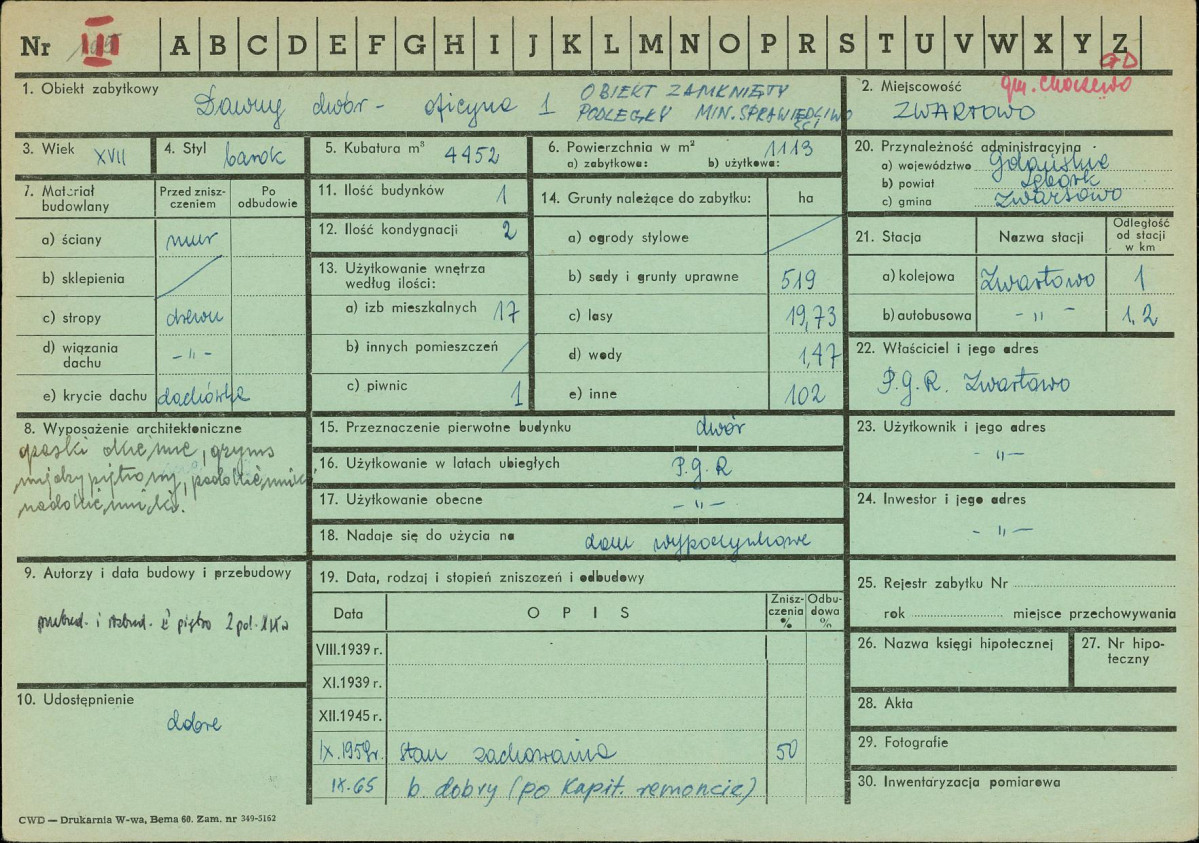 Nr III A B C D E F G H I J K L M N O P R S T U V W X Y Z
1. Obiekt zabytkowy
Dawny dwór - oficyna 1
OBIEKT ZAMKNIĘTY
PODLEGŁY MIN. SPRAWIEDLIWOŚCI
2. Miejscowość
gm. Choczewo
ZWARTOWO
3. Wiek XVII
4. Styl barok
5. Kubatura m³ 4452
6. Powierzchnia w m² 1113
a) zabytkowa: b) użytkowa:
20. Przynależność administracyjna
a) województwo Gdańskie
b) powiat Lębork
c) gmina Zwartowo
7. Materiał budowlany
Przed zniszczeniem
Po odbudowie
a) ściany mur
b) sklepienia /
c) stropy drewn
d) wiązania dachu -„-
e) krycie dachu dachówka
11. Ilość budynków 1
12. Ilość kondygnacji 2
13. Użytkowanie wnętrza według ilości:
a) izb mieszkalnych 17
b) innych pomieszczeń /
c) piwnic 1
14. Grunty należące do zabytku: ha
a) ogrody stylowe /
b) sady i grunty uprawne 519
c) lasy 19,73
d) wody 1,47
e) inne 102
21. Stacja
Nazwa stacji
Odległość od stacji w km
a) kolejowa Zwartowo 1
b) autobusowa -„- 1,2
22. Właściciel i jego adres
P.G.R. Zwartowo
8. Wyposażenie architektoniczne
opaski okienne, gzyms
między piętrowy, podokienniki
nadokienniki.
15. Przeznaczenie pierwotne budynku dwór
16. Użytkowanie w latach ubiegłych P.G.R
17. Użytkowanie obecne -„-
18. Nadaje się do użycia na dom wypoczynkowe
23. Użytkownik i jego adres
-„-
24. Inwestor i jego adres
-„-
9. Autorzy i data budowy i przebudowy
przebud. i rozbud. piętro 2 poł. XIX w
10. Udostępnienie
dobre
19. Data, rodzaj i stopień zniszczeń i odbudowy
Data
OPIS
Zniszczenia %
Odbudowa %
VIII.1939 r.
XI.1939 r.
XII.1945 r.
IX.1959r. stan zachowania 50
IX.65 b. dobry (po kapit. remoncie)
25. Rejestr zabytku Nr
rok miejsce przechowywania
26. Nazwa księgi hipotecznej
27. Nr hipoteczny
28. Akta
29. Fotografie
30. Inwentaryzacja pomiarowa
CWD — Drukarnia W-wa, Bema 60. Zam. nr 349-5162